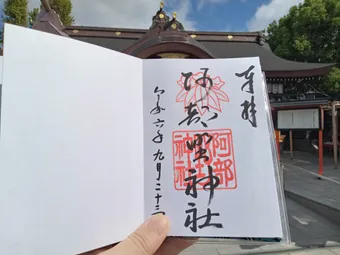 奉拝
阿部野神社
阿部野神社
令和六年九月二十三日